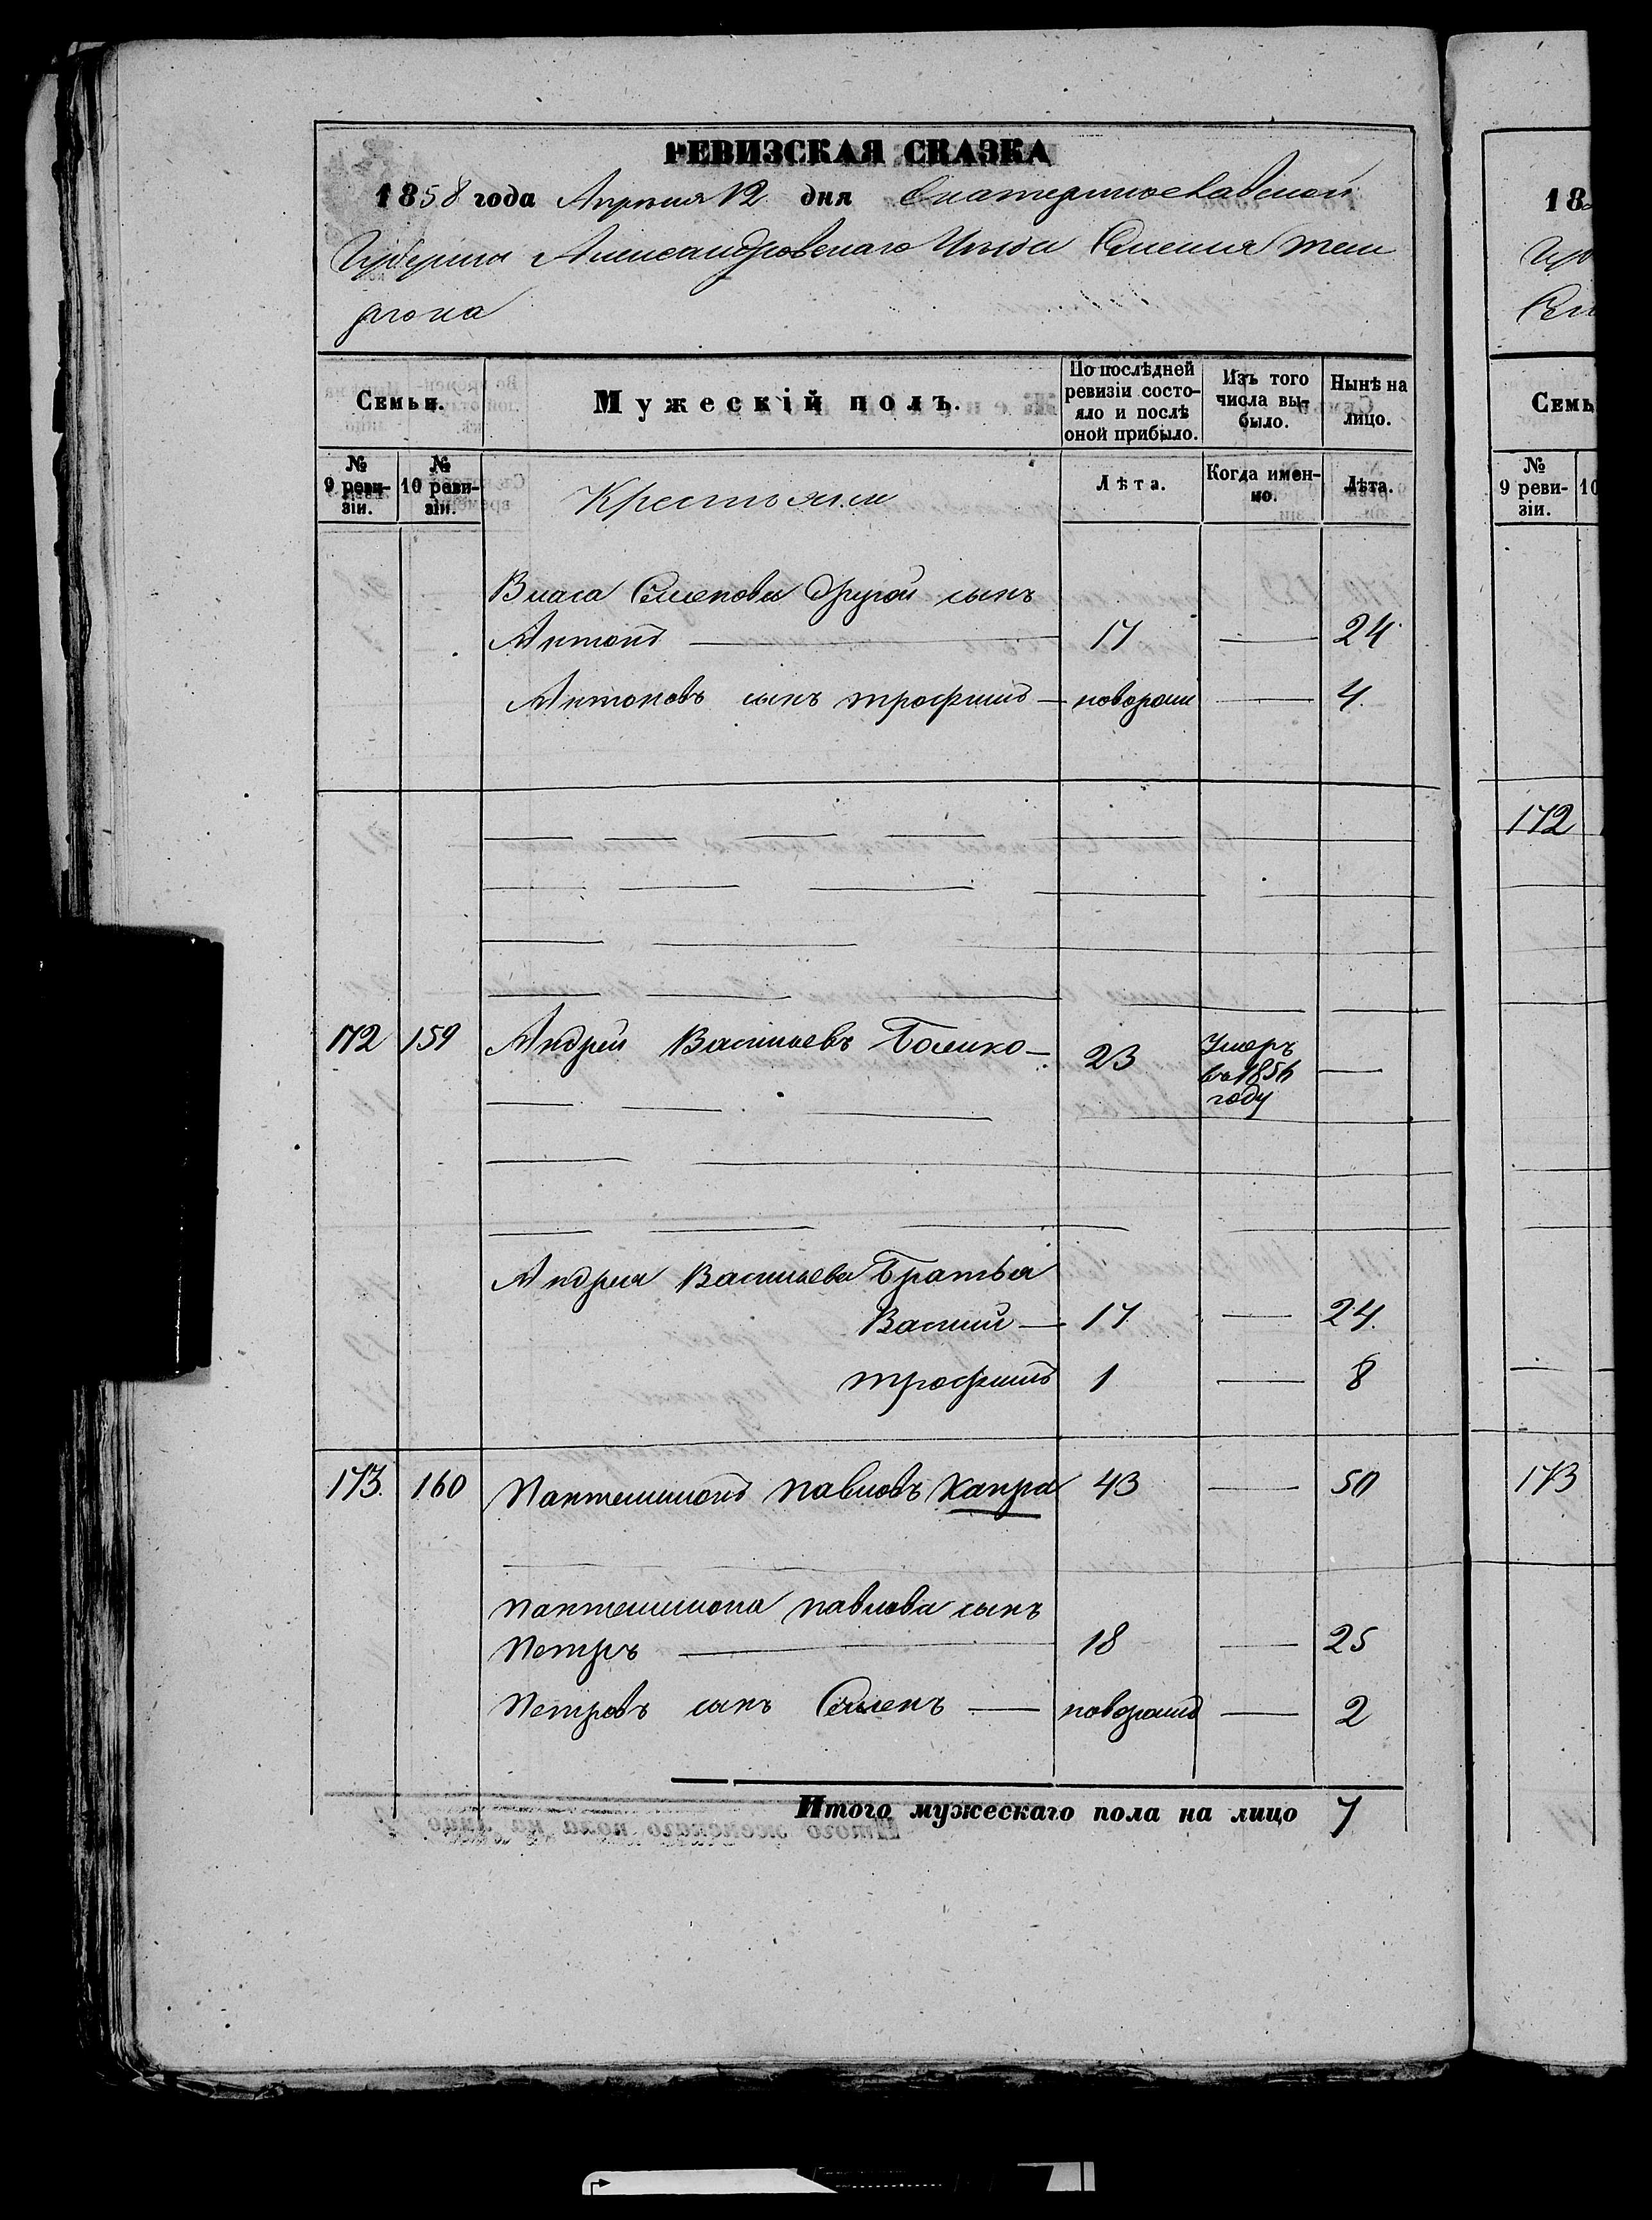 РЕВИЗСКАЯ СКАЗКА
1858 года Апреля 12 дня Екатеринославской
Губернии Александровскаго Уезда Селения Тем
рюка
Семьи.
Мужескій полъ.
По послѣдней ревизіи состо-
яло и послѣ
оной прибыло.
Изъ того
числа вы-
было.
Нынѣ на
лицо.
№
9 реви-
зіи.
№
10 реви-
зіи.
Крестьяне
Лѣта.
Когда имен-
но.
Лѣта.
Власа Семенова другой сынъ
Антонъ 17 — 24
Антоновъ сынъ трофимъ — новорожд — 4
172 159 Андрей Васильевъ — 23 Умеръ
въ 1856
году —
Андрея Васильева Братья
Василий — 17 — 24
трофимъ 1 — 8
173 160 Пантелимонъ Павловъ Хапра 43 — 50
Пантелимона Павлова сынъ
Петръ — 18 — 25
Петровъ сынъ Семенъ — новорожд — 2
Итого мужескаго пола на лицо 7
18
Семь
№
9 реви-
зіи.
10
172
173